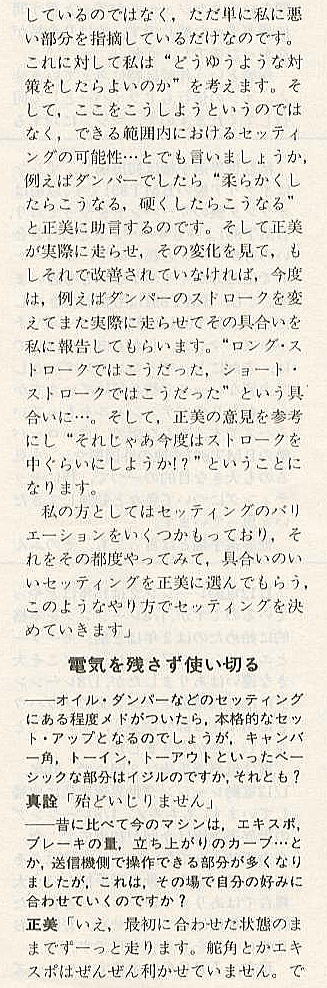 しているのではなく，ただ単に私に悪
い部分を指摘しているだけなのです。
これに対して私は“どうゆうような対
策をしたらよいのか”を考えます。そ
して，ここをこうしようというのでは
なく，できる範囲内におけるセッティ
ングの可能性…とでも言いましょうか，
例えばダンパーでしたら“柔らかくし
たらこうなる，硬くしたらこうなる”
と正美に助言するのです。そして正美
が実際に走らせ，その変化を見て，も
しそれで改善されていなければ，今度
は，例えばダンパーのストロークを変
えてまた実際に走らせてその具合いを
私に報告してもらいます。“ロング・ス
トロークではこうだった，ショート・
ストロークではこうだった”という具
合いに…。そして，正美の意見を参考
にし“それじゃあ今度はストロークを
中ぐらいにしようか!?”ということに
なります。
　私の方としてはセッティングのバリ
エーションをいくつかもっており，そ
れをその都度やってみて，具合いのい
いセッティングを正美に選んでもらう，
このようなやり方でセッティングを決
めていきます」
電気を残さず使い切る
――オイル・ダンパーなどのセッティング
にある程度メドがついたら，本格的なセッ
ト・アップとなるのでしょうが，キャンバ
ー角，トーイン，トーアウトといったベー
シックな部分はイジルのですか，それとも？
真詮「殆どいじりません」
――昔に比べて今のマシンは，エキスポ，
ブレーキの量，立ち上がりのカーブ…と
か，送信機側で操作できる部分が多くなり
ましたが，これは，その場で自分の好みに
合わせていくのですか？
正美「いえ，最初に合わせた状態のま
までずーっと走ります。舵角とかエキ
スポはぜんぜん利かせていません。で